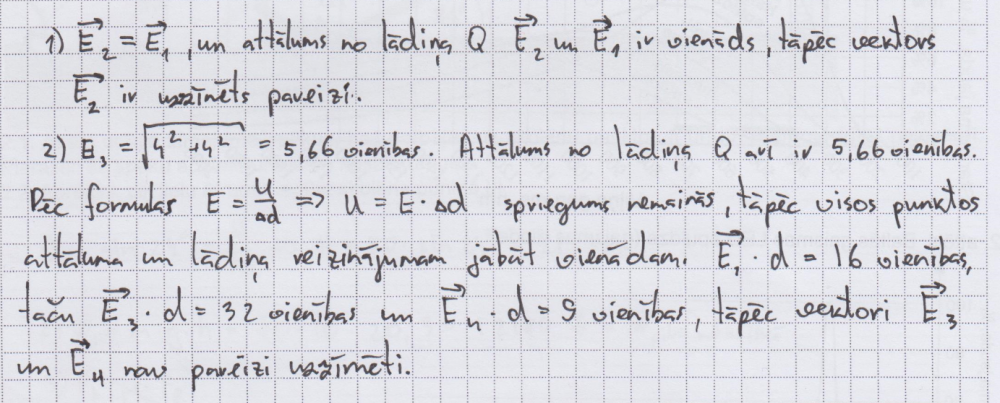 1) E⃗₂ = E⃗₁, un attālums no lādiņa Q E⃗₂ un E⃗₁ ir vienāds, tāpēc vektors
E⃗₂ ir uzzīmēts pareizi.
2) E₃ = √(4² + 4²) = 5,66 vienības. Attālums no lādiņa Q arī ir 5,66 vienības.
Pēc formulas E = U/Δd => U = E · Δd spriegums nemainās, tāpēc visos punktos
attāluma un lādiņa reizinājumam jābūt vienādam. E⃗₁ · d = 16 vienības,
taču E⃗₃ · d = 32 vienības un E⃗₄ · d = 9 vienības, tāpēc vektori E⃗₃
un E⃗₄ nav pareizi uzzīmēti.